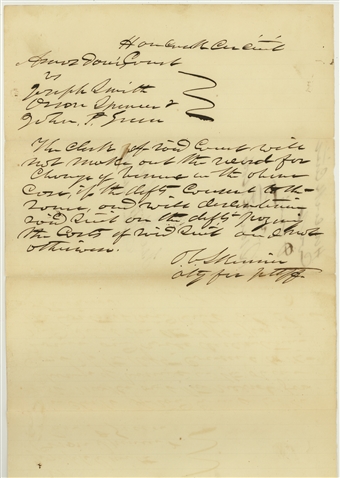 Hancock Circuit
Amos Davis Court
vs
Joseph Smith
Orson Spencer &
John P. Green
The clerk of said Court will
not make out the record for
Change of Venue in the above
Case, if the defts Consent to the
same, and will discontinue
said Suit on the defts paying
the Costs of said Suit and not
otherwise.
O C Skinner
atty for pltff